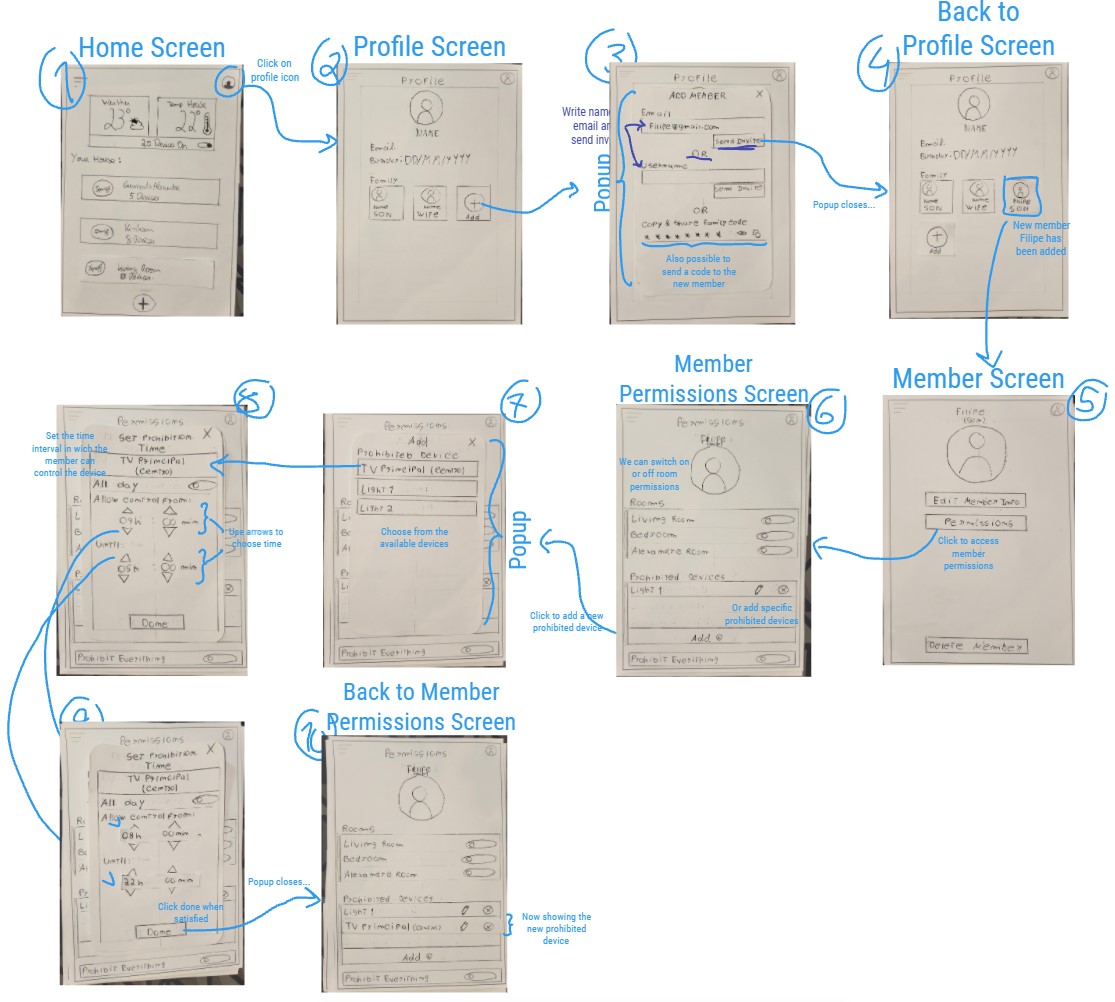 1
Home Screen
Click on
profile icon
Weather
23°
Temp House
22°
20 Devices On
Your House:
5 Devices
Kitchen
8 Devices
Living Room
2
Profile Screen
Profile
NAME
Email:
Birthday: DD/MM/YYYY
Family
Name
SON
Name
WIFE
Add
3
Popup
Write name
email an
send inv
Profile
ADD MEMBER
X
Email
Filipe@gmail.com
Send Invite
OR
Username
Send Invite
OR
Copy & Share Family Code
* * * * * * *
Also possible to
send a code to the
new member
Popup closes...
4
Back to
Profile Screen
Profile
NAME
Email:
Birthday: DD/MM/YYYY
Family
Name
SON
Name
WIFE
Filipe
SON
Add
New member
Filipe has
been added
5
Member Screen
Filipe
(Son)
Edit Member Info
Permissions
Click to access
member
permissions
Delete Member
6
Member
Permissions Screen
Permissions
Filipe
We can switch on
or off room
permissions
Rooms
Living Room
Bedroom
Alexandre Room
Prohibited Devices
Light 1
Or add specific
prohibited devices
Add
Prohibit Everything
Click to add a new
prohibited device
7
Popup
Permissions
Add
X
Prohibited Device
TV Principal (Centro)
Light 1
Light 2
Choose from the
available devices
Prohibit Everything
8
Permissions
Set Prohibition
Time
X
Set the time
interval in wich the
member can
control the device
TV Principal
(Centro)
All day
Allow control from:
09h : 00 min
Use arrows to
choose time
Until:
05h : 00 min
Done
Prohibit Everything
9
Permissions
Set Prohibition
Time
X
TV Principal
(Centro)
All day
Allow control from:
08h 00 min
Until:
22h 00 min
Click done when
satisfied
Done
Prohibit Everything
Popup closes...
10
Back to Member
Permissions Screen
Permissions
Filipe
Rooms
Living Room
Bedroom
Alexandre Room
Prohibited Devices
Light 1
TV Principal (Centro)
Now showing the
new prohibited
device
Add
Prohibit Everything